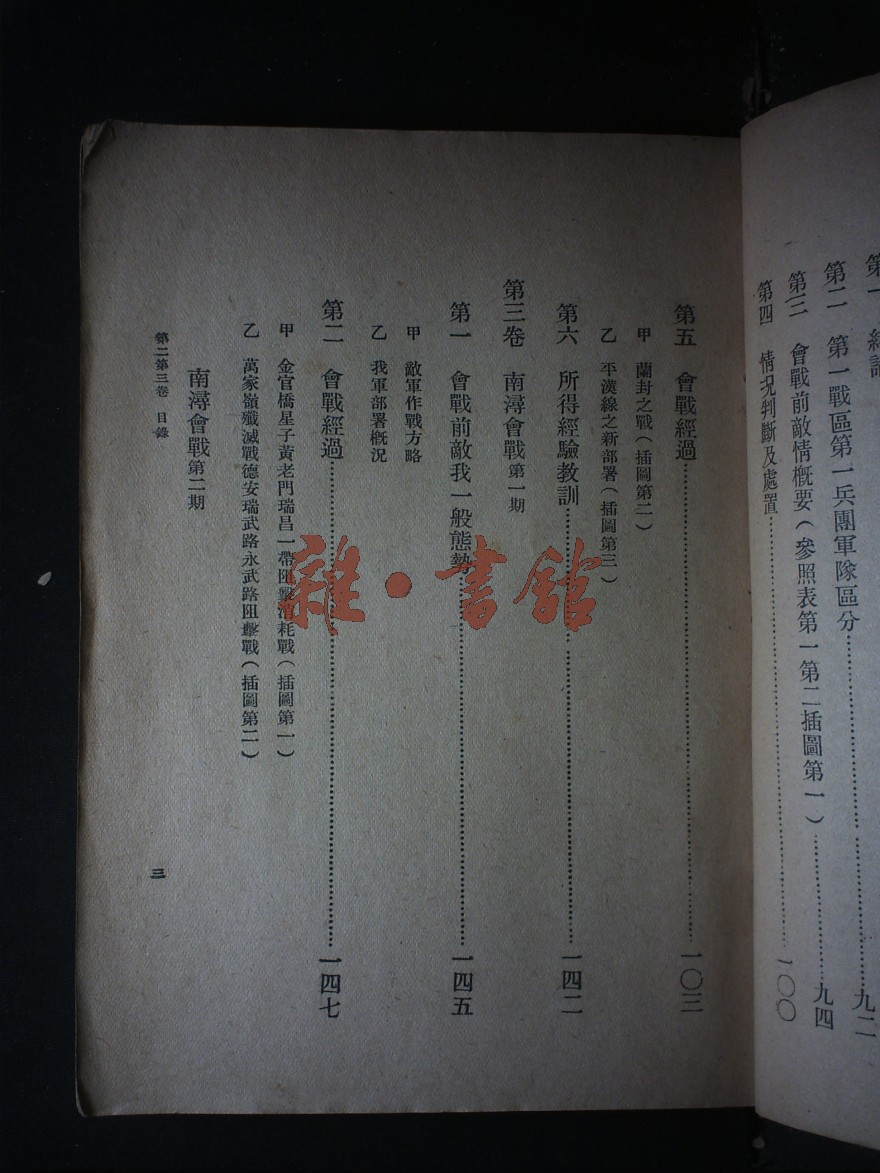 第二　第一戰區第一兵團軍隊區分……九二
第三　會戰前敵情概要（參照表第一第二插圖第一）……九四
第四　情況判斷及處置……一〇〇
第五　會戰經過……一〇三
甲　蘭封之戰（插圖第二）
乙　平漢線之新部署（插圖第三）
第六　所得經驗教訓……一四二
第三卷　南潯會戰第一期
第一　會戰前敵我一般態勢……一四五
甲　敵軍作戰方略
乙　我軍部署概況
第二　會戰經過……一四七
甲　金官橋星子黃老門瑞昌一帶阻擊消耗戰（插圖第一）
乙　萬家嶺殲滅戰德安瑞武路永武路阻擊戰（插圖第二）
南潯會戰第二期
第二第三卷　目錄
三
雜·書館